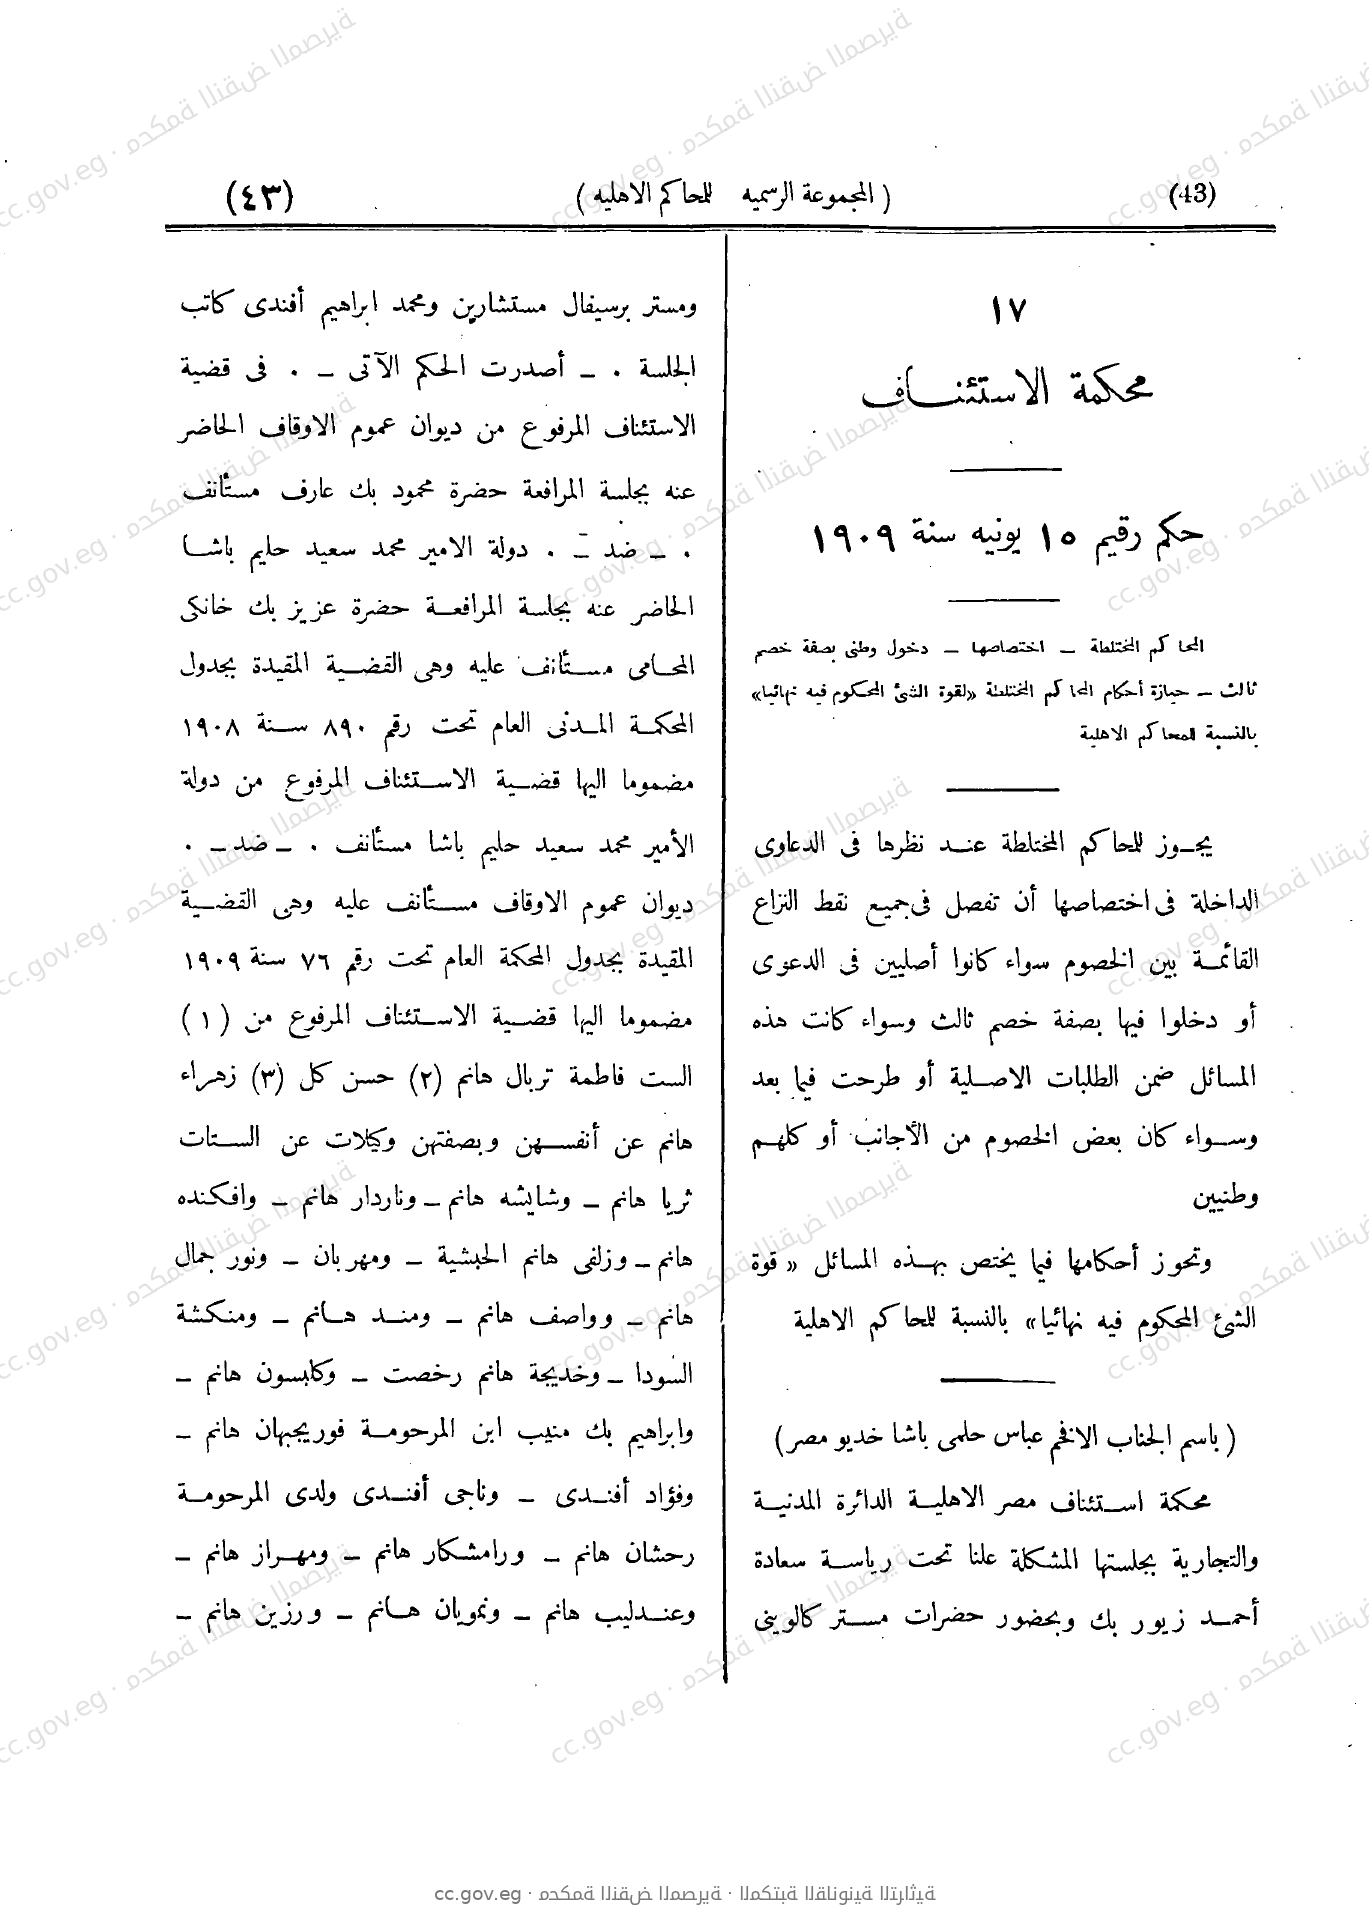 (43)
( المجموعة الرسميه للمحاكم الاهليه )
(٤٣)
١٧
محكمة الاستئنـاف
حكم رقيم ١٥ يونيه سنة ١٩٠٩
المحاكم المختلطة – اختصاصها – دخول وطنى بصفة خصم
ثالث – حيازة أحكام المحاكم المختلطة «لقوة الشئ المحكوم فيه نهائيا»
بالنسبة للمحاكم الاهلية
يجوز للمحاكم المختلطة عند نظرها فى الدعاوى
الداخلة فى اختصاصها أن تفصل فى جميع نقط النزاع
القائمة بين الخصوم سواء كانوا أصليين فى الدعوى
أو دخلوا فيها بصفة خصم ثالث وسواء كانت هذه
المسائل ضمن الطلبات الاصلية أو طرحت فيما بعد
وسواء كان بعض الخصوم من الأجانب أو كلهم
وطنيين
وتحوز أحكامها فيما يختص بهذه المسائل «قوة
الشئ المحكوم فيه نهائيا» بالنسبة للمحاكم الاهلية
( باسم الجناب الافخم عباس حلمى باشا خديو مصر )
محكمة استئناف مصر الاهلية الدائرة المدنية
والتجارية بجلستها المشكلة علنا تحت رياسة سعادة
أحمد زيور بك وبحضور حضرات مستر كالوينى
ومستر برسيفال مستشارين ومحمد ابراهيم أفندى كاتب
الجلسة . – أصدرت الحكم الآتى – . فى قضية
الاستئناف المرفوع من ديوان عموم الاوقاف الحاضر
عنه بجلسة المرافعة حضرة محمود بك عارف مستأنف
. – ضد – . دولة الامير محمد سعيد حليم باشا
الحاضر عنه بجلسة المرافعة حضرة عزيز بك خانكى
المحامى مستأنف عليه وهى القضية المقيدة بجدول
المحكمة المدنى العام تحت رقم ٨٩٠ سنة ١٩٠٨
مضموما اليها قضية الاستئناف المرفوع من دولة
الأمير محمد سعيد حليم باشا مستأنف . – ضد – .
ديوان عموم الاوقاف مستأنف عليه وهى القضية
المقيدة بجدول المحكمة العام تحت رقم ٧٦ سنة ١٩٠٩
مضموما اليها قضية الاستئناف المرفوع من (١)
الست فاطمة تربال هانم (٢) حسن كل (٣) زهراء
هانم عن أنفسهن وبصفتهن وكيلات عن الستات
ثريا هانم – وشايشه هانم – وناردار هانم – وافكنده
هانم – وزلفى هانم الحبشية – ومهربان – ونور جمال
هانم – وواصف هانم – ومند هانم – ومنكشة
السودا – وخديجة هانم رخصت – وكلبسون هانم –
وابراهيم بك منيب ابن المرحومة فوريجيهان هانم –
وفؤاد أفندى – وناجى أفندى ولدى المرحومة
رحشان هانم – ورامشكار هانم – ومهراز هانم –
وعندليب هانم – ونمويان هانم – ورزين هانم –
cc.gov.eg · محكمة النقض المصرية · المكتبة القانونية التراثية